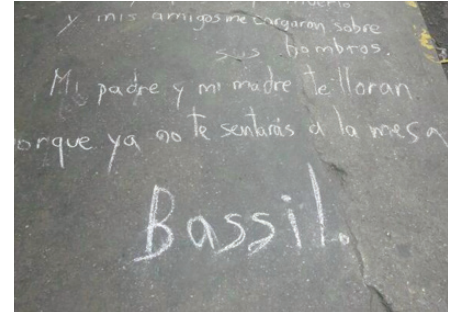 muerto
y mis amigos me cargaron sobre
sus hombros.
Mi padre y mi madre te lloran
orque ya no te sentarás a la mesa
Bassil.